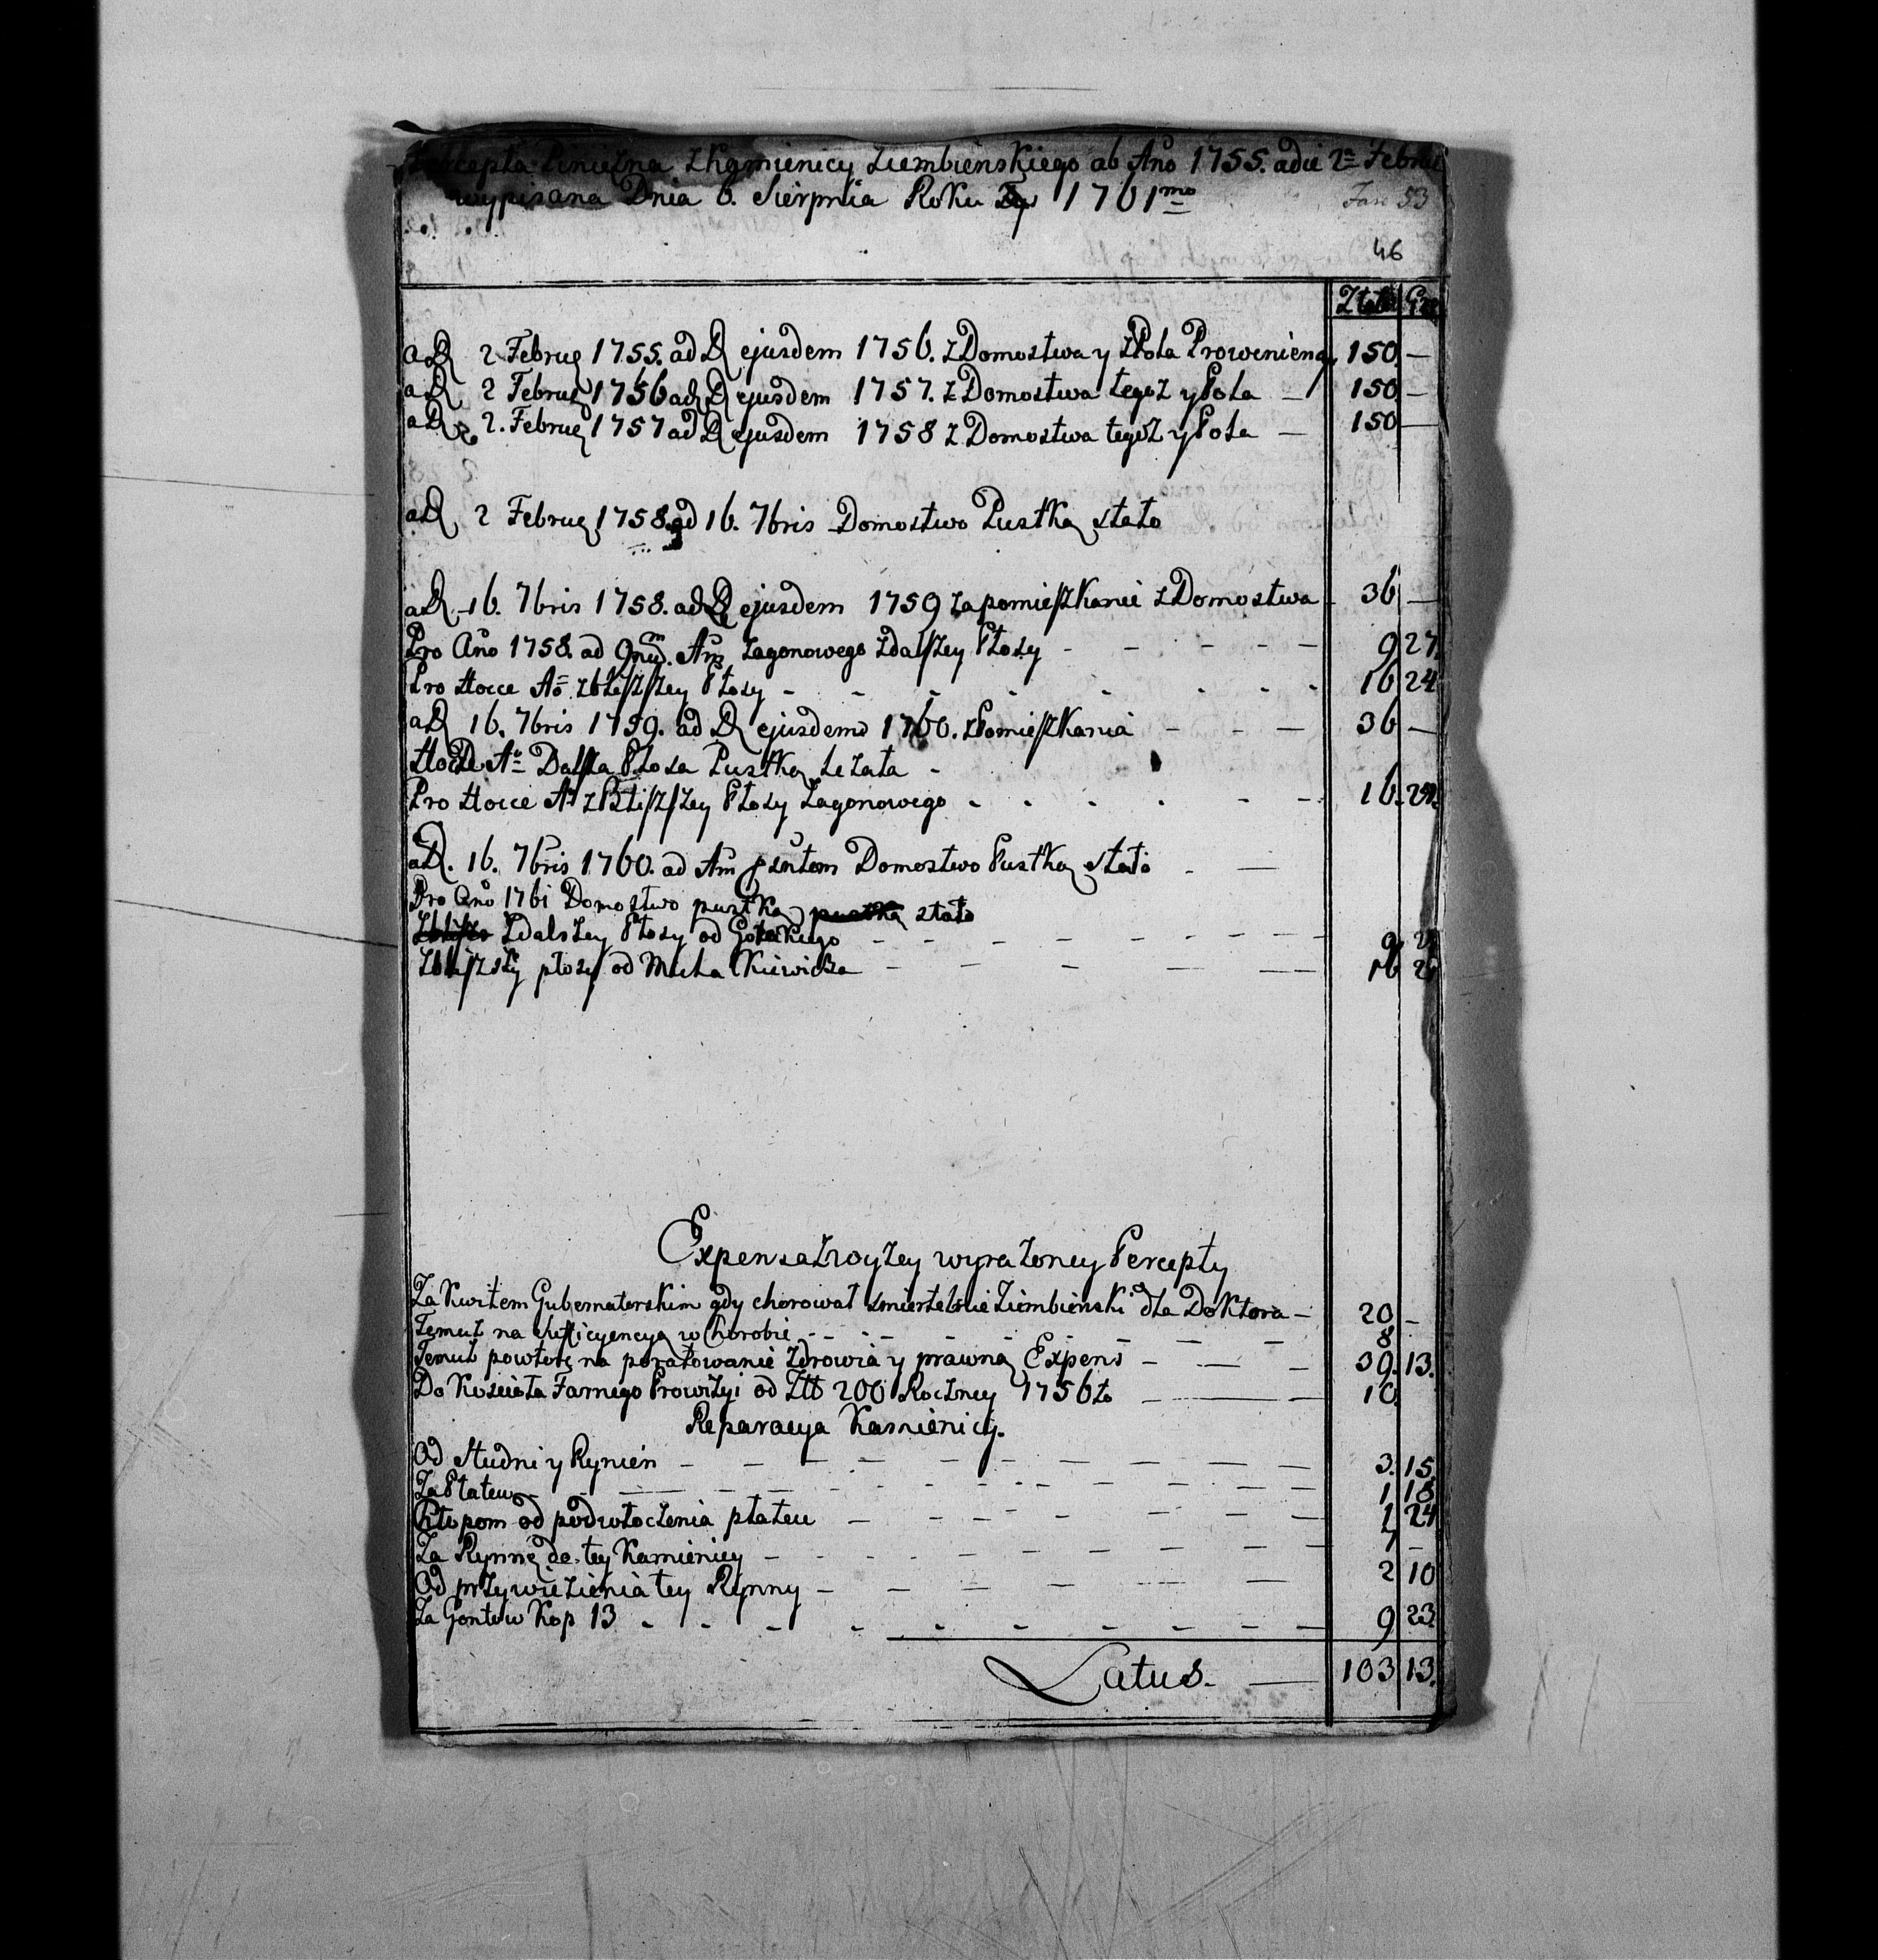 Percepta Pinięzna z Kamienicy Ziembienskiego ab Año 1755. a die 2ª Febru
wypisana Dnia 6. Sierpnia Roku 1761mo
Fasc 53
46
Złote Gro
a D 2 Februa 1755. ad D ejusdem 1756. z Domostwa y z Pola Prowenieną 150. —
a D 2 Februa 1756 ad D ejusdem 1757. z Domostwa tegoż y Pola — 150. —
a D 2. Februa 1757 ad D ejusdem 1758 z Domostwa tegoż y Pola — 150 —
a D 2 Februa 1758. ad 16. 7bris Domostwo Pustką stało
a D 16. 7bris 1758. ad D ejusdem 1759 za pomieszkanie z Domostwa 36 —
Pro Año 1758. ad Añ Zagonowego z dalszey Płosy - - - - - 9 27
Pro Hocce Aº z bliszszey Płosy - - - - - - - - 16 24
a D 16. 7bris 1759. ad D ejusdem 1760. z Pomieszkania - - — 36 —
Hocce Aº Dalsza Płosa Pustką Leżała -
Pro Hocce Aº z Bliszszey Płosy Zagonowego - - - - - - 16. 24.
a D. 16. 7bris 1760. ad Añ Domostwo Pustką stało - —
Pro Año 1761 Domostwo pustką pustką stało
z dalszey Płosy od Gołeckiego - - - - - - - - - 9 27
z bliszszy płosy od Michałkiewicza - - - - — 16 24
Expensa z wyżey wyrażoney Percepty
Za Kwitem Gubernatorskim gdy chorował smiertelnie Ziembienski dla Doktora — 20 —
Temuż na sufficyencyą w Chorobie - - - - - - - - 8
Temuż powtore na poratowanie zdrowia y prawną Expens — — - 39. 13.
Do Kościoła Farnego Prowizyi od Złł 200 Roczney 1756to — — — 10
Reparacya Kamienicy.
Od Studni y Rynien - - - - - - - - - - 3. 15.
Za Płatew - - - - - - - - - - 1 18
Chłopom od podwłoczenia płatew — - - - - - - — 1 24
Za Rynnę do tey Kamienicy - - - - - - - - — 7 —
Od przywiezienia tey Rynny - - - - — - — 2 10
Za Gontow Kop 13 - - - - - - - - - - — 9 23
Latus. — 103 13.